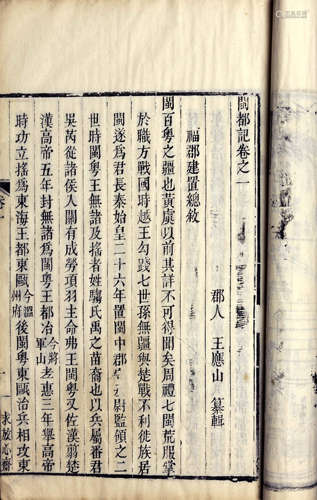 閩都記卷之一
郡人 王應山 纂輯
福郡建置總敘
閩百粤之疆也黃虞以前其詳不可得聞矣周禮七閩荒服掌
於職方戰國時越王勾踐七世孫無疆與楚戰不利徙族居
閩遂爲君長秦始皇二十六年置閩中郡 尉監領之二
世時閩粤王無諸及搖者姓騶氏禹之苗裔也以兵屬番君
吳芮從諸侯人關有成勞項羽主命弗王閩粤又佐漢翦楚
漢高帝五年封無諸爲閩粤王都冶今將軍山孝惠三年舉高帝
時功立搖爲東海王都東甌今溫州府後閩粤東甌治兵相攻東
求放心齋